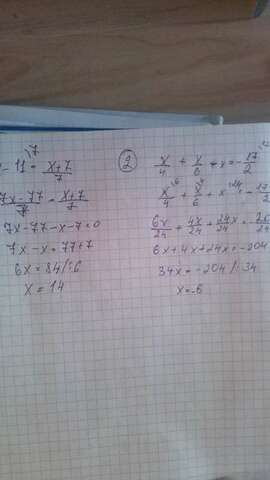 - 11 = x+7/7 \7
7x-77/7 = x+7/7
7x-77-x-7=0
7x-x=77+7
6x=84/:6
x=14
② x/4 + x/6 + x = -17/2
x/4 \6 + x/6 \4 + x \24 = 17/2
6x/24 + 4x/24 + 24x/24 =
6x+4x+24x=-204
34x=-204/:34
x=-6